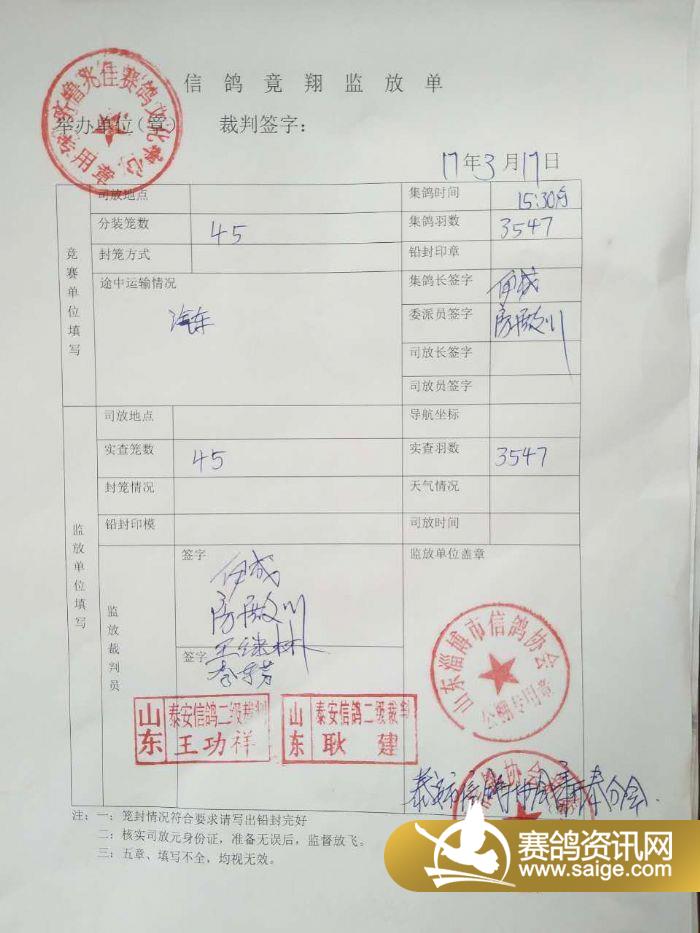 信鸽竞翔监放单
举办单位(章) 裁判签字:
齐鲁兆佳赛鸽文化中心
专用章
17年3月17日
竞赛单位填写
司放地点 集鸽时间 15:30分
分装笼数 45 集鸽羽数 3547
封笼方式 铅封印章
途中运输情况 集鸽长签字
汽车 委派员签字
司放长签字
司放员签字
监放单位填写
司放地点 导航坐标
实查笼数 45 实查羽数 3547
封笼情况 天气情况
铅封印模 司放时间
监放裁判员 签字 监放单位盖章
签字
山东淄博市信鸽协会
公棚专用章
山东 泰安信鸽二级裁判 王功祥
山东 泰安信鸽二级裁判 耿建
泰安市信鸽协会新泰分会
注:一:笼封情况符合要求请写出铅封完好
二:核实司放元身份证,准备无误后,监督放飞。
三:五章、填写不全,均视无效。
赛鸽资讯网
www.saige.com